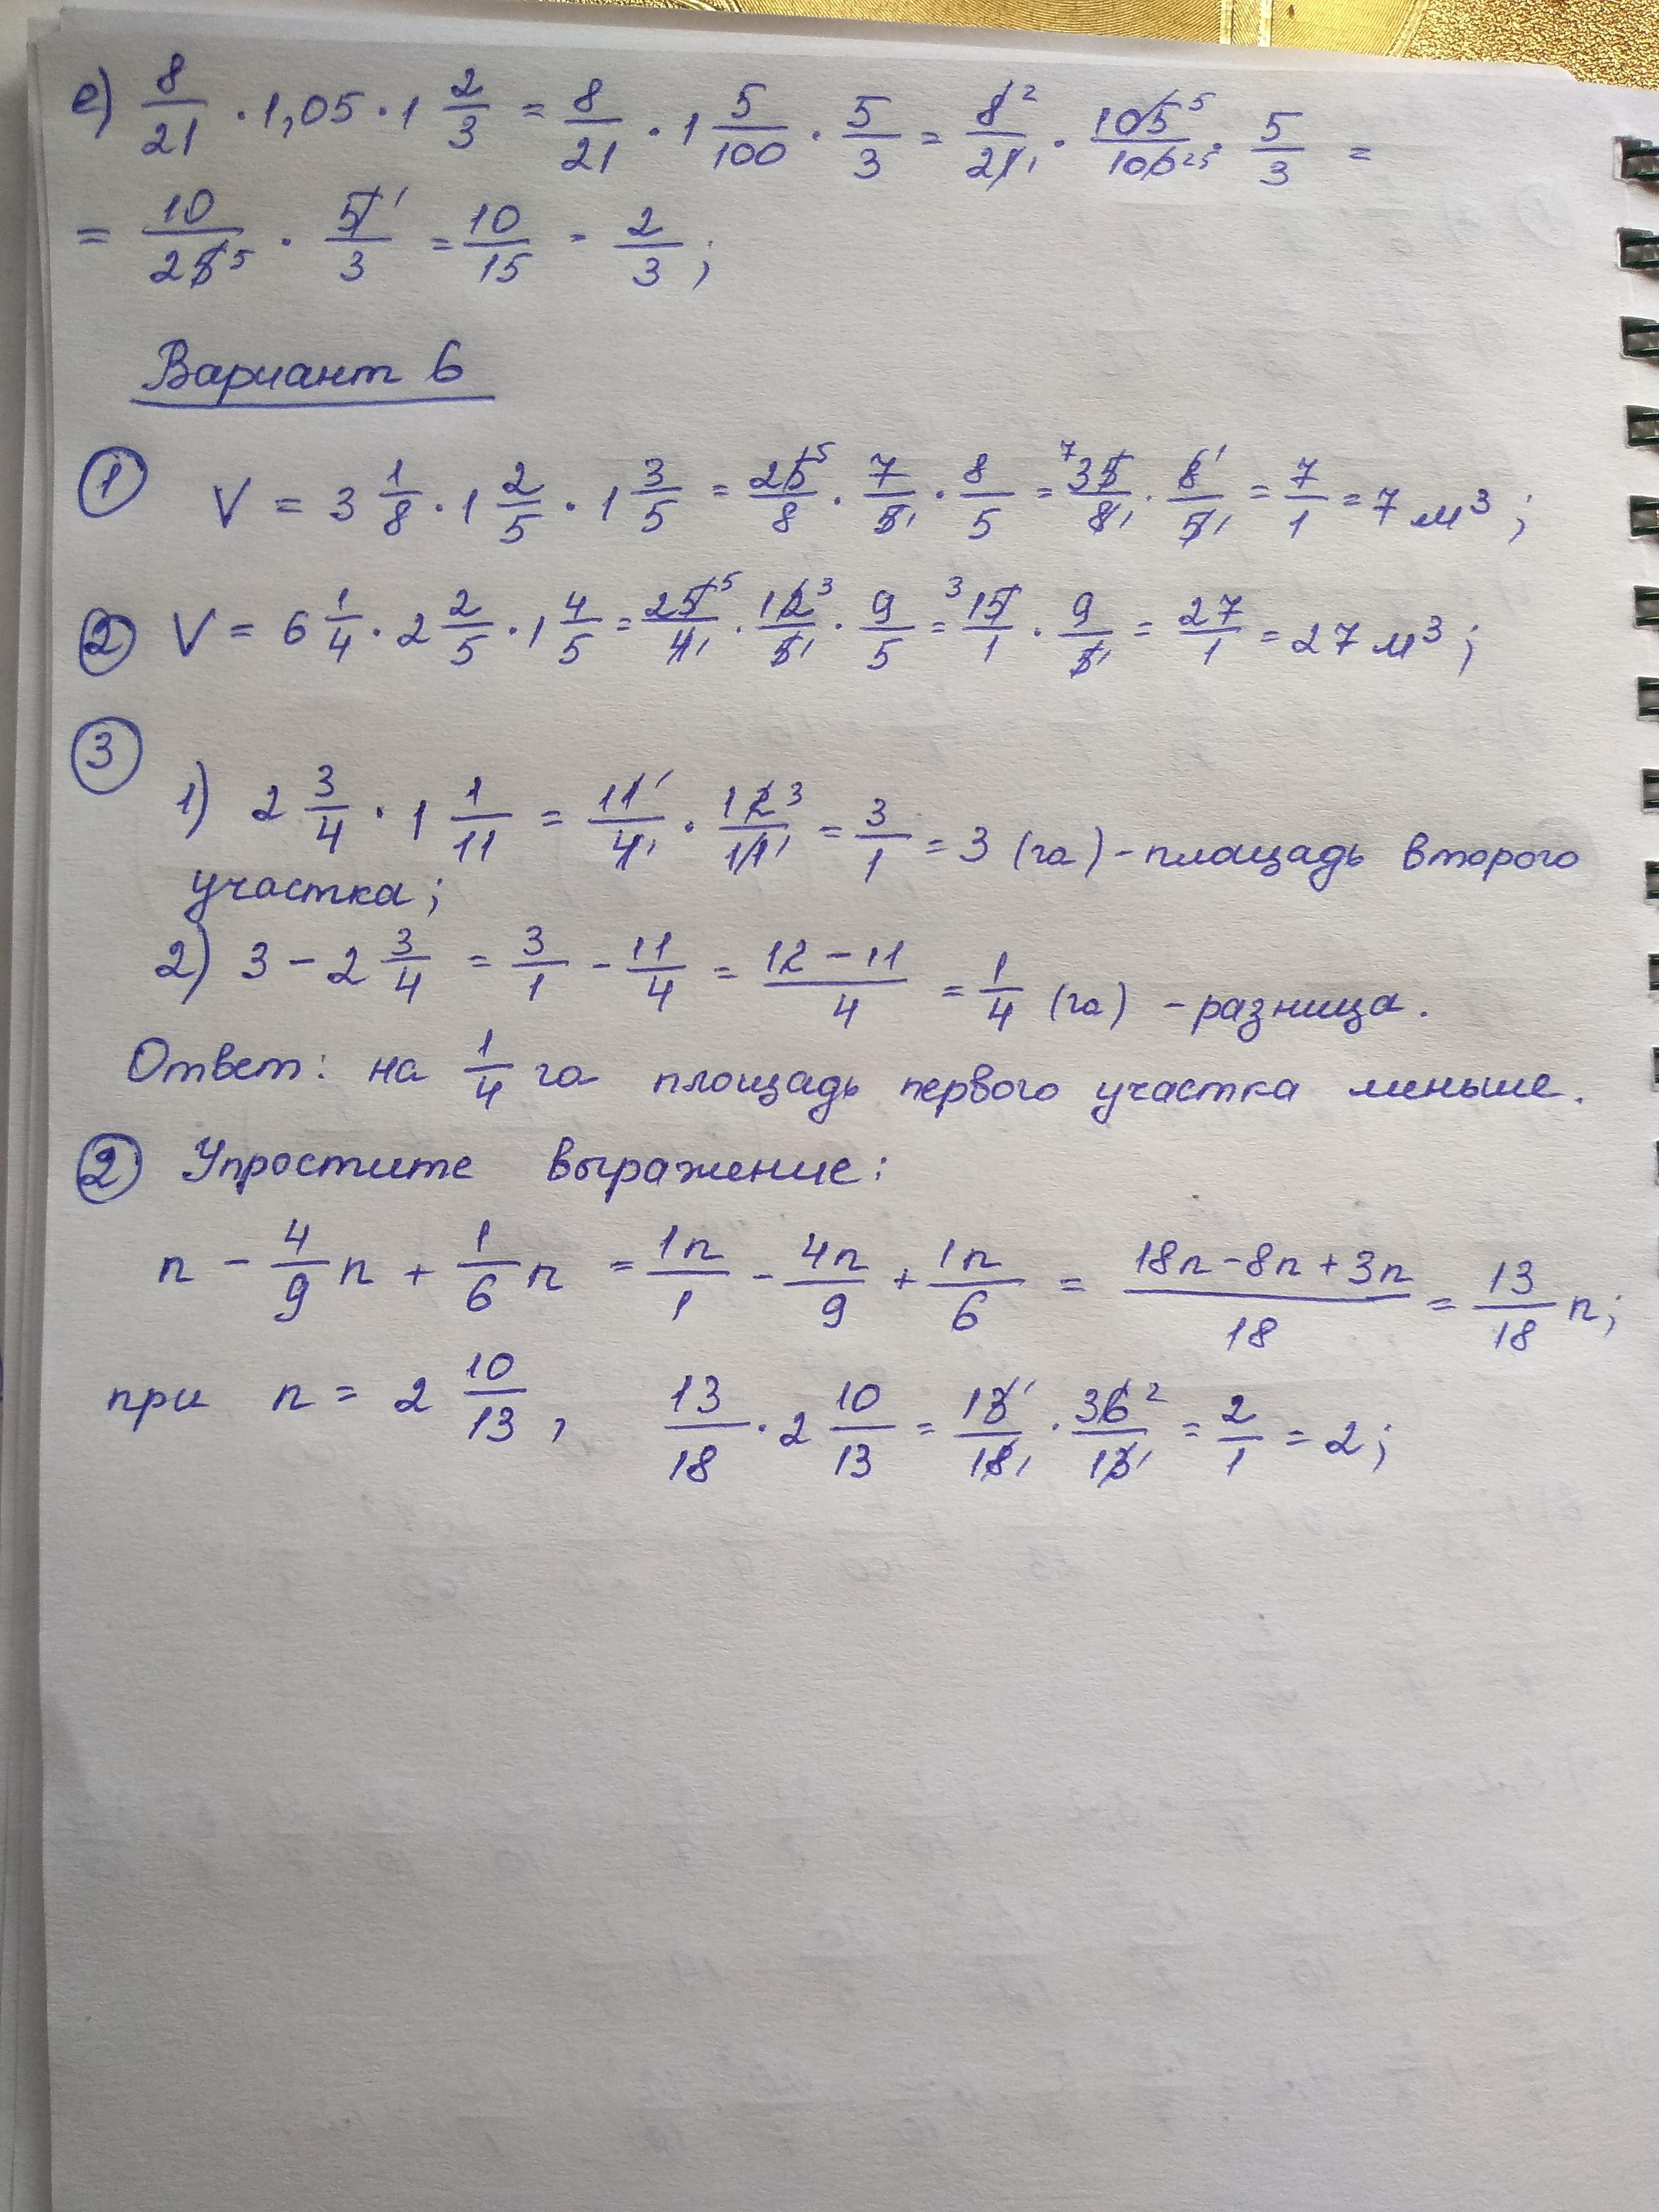 е) 8/21 · 1,05 · 1 2/3 = 8/21 · 1 5/100 · 5/3 = 8²/21₁ · 105⁵/100₂₅ · 5/3 =
= 10/25₅ · 5¹/3 = 10/15 = 2/3;
Вариант 6
① V = 3 1/8 · 1 2/5 · 1 3/5 = 25⁵/8 · 7/5₁ · 8/5 = ⁷35/8₁ · 8¹/5₁ = 7/1 = 7 м³;
② V = 6 1/4 · 2 2/5 · 1 4/5 = 25⁵/4₁ · 12³/5₁ · 9/5 = ³15/1 · 9/5₁ = 27/1 = 27 м³;
③
1) 2 3/4 · 1 1/11 = 11¹/4₁ · 12³/11₁ = 3/1 = 3 (га) - площадь второго
участка;
2) 3 - 2 3/4 = 3/1 - 11/4 = 12 - 11/4 = 1/4 (га) - разница.
Ответ: на 1/4 га площадь первого участка меньше.
② Упростите выражение:
n - 4/9 n + 1/6 n = 1n/1 - 4n/9 + 1n/6 = 18n - 8n + 3n/18 = 13/18 n;
при n = 2 10/13, 13/18 · 2 10/13 = 13¹/18₁ · 36²/13₁ = 2/1 = 2;